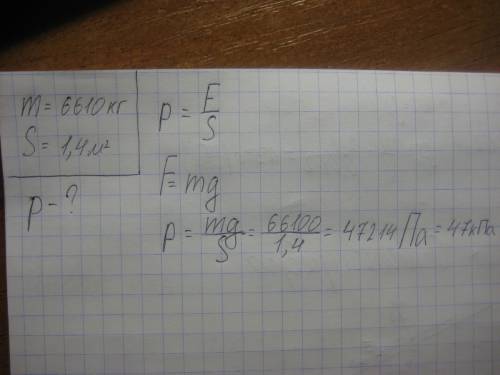 m = 6610 кг
S = 1,4 м²
p - ?
p = F/S
F = mg
p = mg/S = 66100/1,4 = 47214 Па = 47 кПа